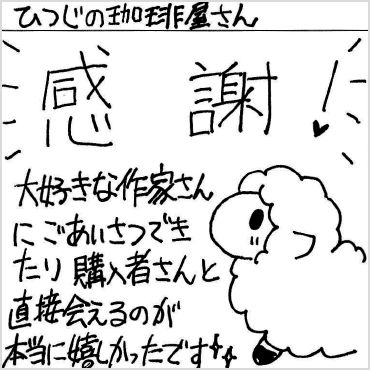 ひつじの珈琲屋さん
感謝!
大好きな作家さん
にごあいさつでき
たり購入者さんと
直接会えるのが
本当に嬉しかったです